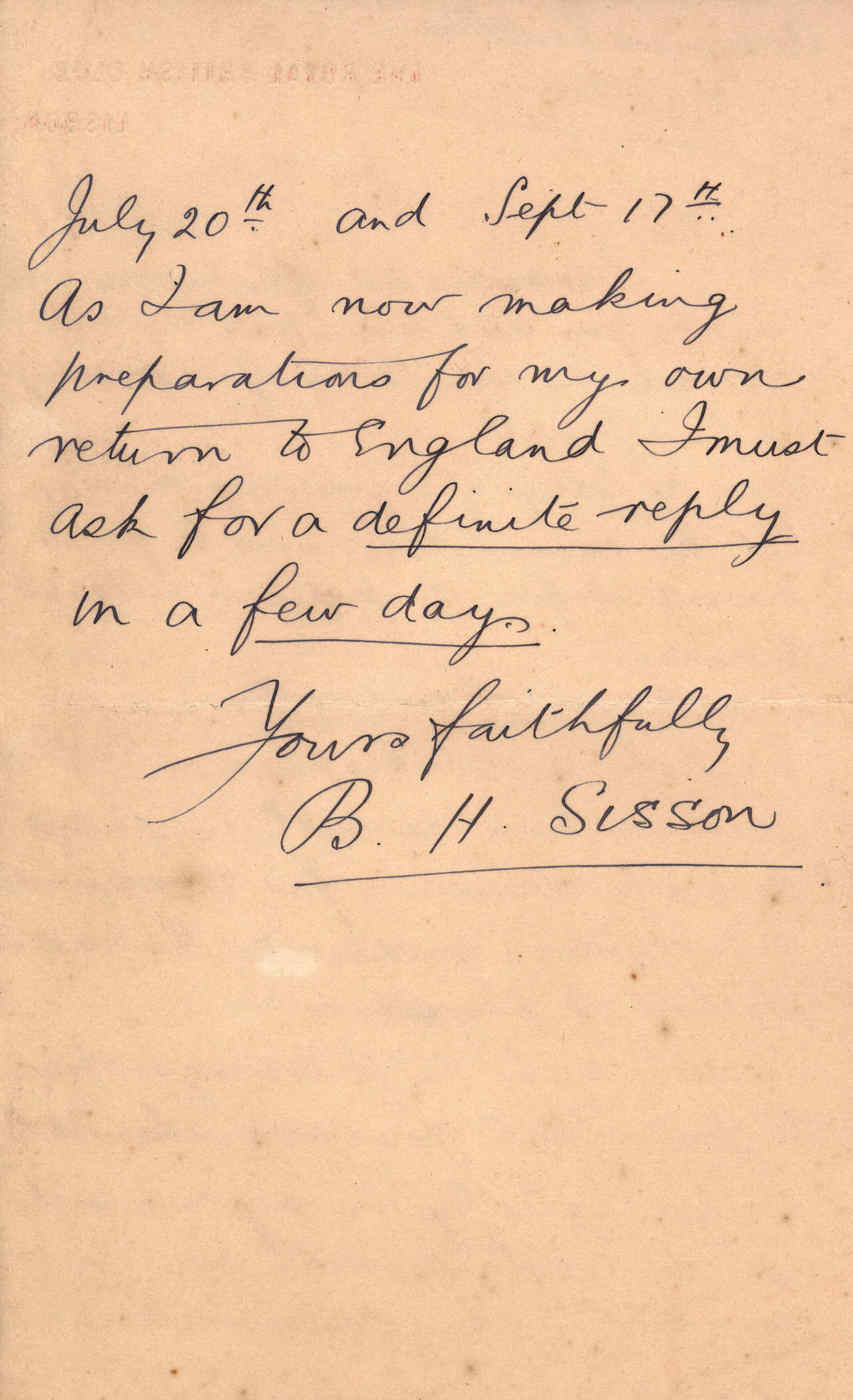 July 20th and Sept 17th.
As I am now making
preparations for my own
return to England I must
ask for a definite reply
in a few days.
Yours faithfully
B. H. Sisson